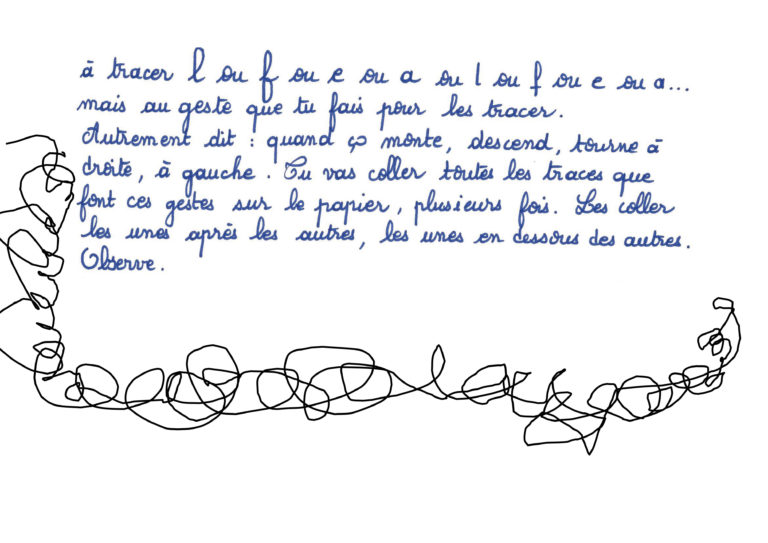 à tracer l ou f ou e ou a ou l ou f ou e ou a...
mais au geste que tu fais pour les tracer.
Autrement dit : quand ça monte, descend, tourne à
droite, à gauche. Tu vas coller toutes les traces que
font ces gestes sur le papier, plusieurs fois. Les coller
les unes après les autres, les unes en dessous des autres.
Observe.